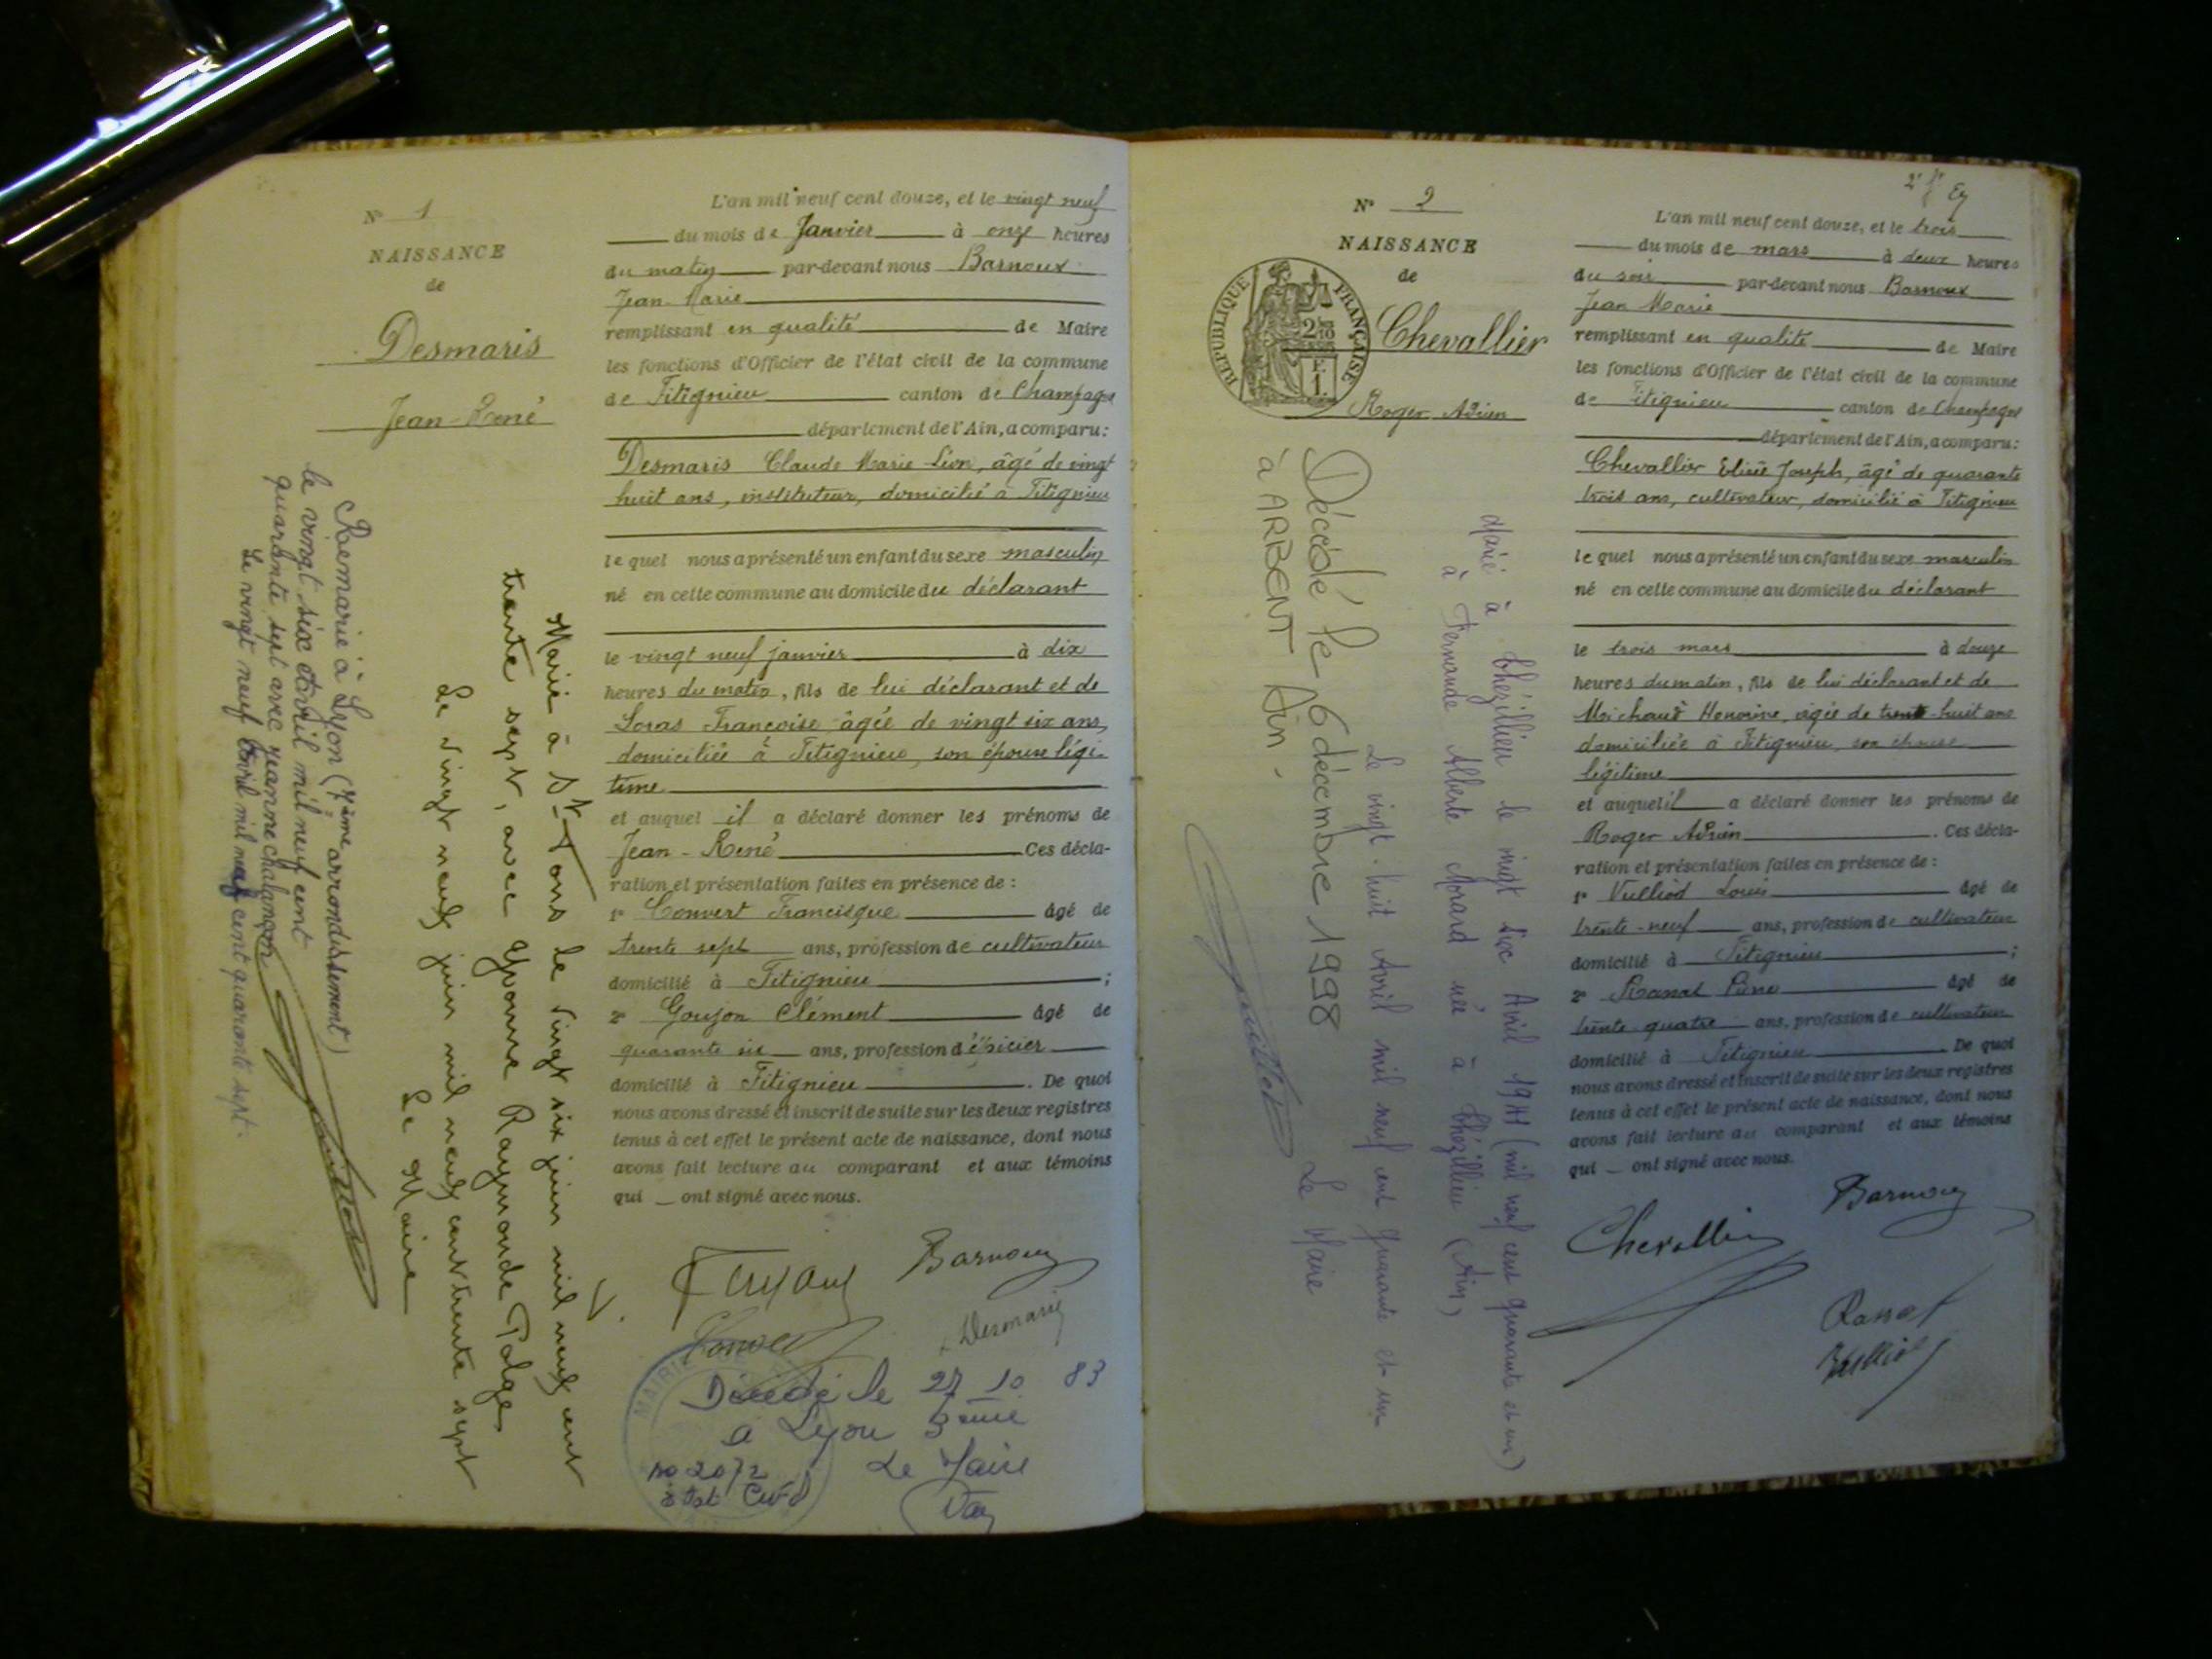 N° 1
NAISSANCE
de
Desmaris
Jean-René
L'an mil neuf cent douze, et le vingt neuf
du mois de Janvier à onze heures
du matin par-devant nous Barnoux
Jean-Marie
remplissant en qualité de Maire
les fonctions d'Officier de l'état civil de la commune
de Fitignieu canton de Champagne
département de l'Ain, a comparu:
Desmaris Claude Marie Léon, âgé de vingt
huit ans, instituteur, domicilié à Fitignieu
le quel nous a présenté un enfant du sexe masculin
né en cette commune au domicile du déclarant
le vingt neuf janvier à dix
heures du matin, fils de lui déclarant et de
Loras Françoise âgée de vingt six ans,
domiciliée à Fitignieu, son épouse légi-
time
et auquel il a déclaré donner les prénoms de
Jean-René Ces décla-
ration et présentation faites en présence de :
1° Convert Francisque âgé de
trente sept ans, profession de cultivateur
domicilié à Fitignieu ;
2° Goujon Clément âgé de
quarante six ans, profession d'épicier
domicilié à Fitignieu . De quoi
nous avons dressé et inscrit de suite sur les deux registres
tenus à cet effet le présent acte de naissance, dont nous
avons fait lecture au comparant et aux témoins
qui _ ont signé avec nous.
Barnoux
Desmaris
Décédé le 27 10 83
à Lyon 3eme
no 2072 Le Maire
état Civil
Marié à St Fons le vingt six juin mil neuf cent
trente sept, avec Yvonne Raymonde Polge
Le vingt neuf juin mil neuf cent trente sept
Le Maire
Remarié à Lyon (7ème arrondissement)
le vingt six avril mil neuf cent
quarante sept avec Jeanne Chalançon
Le vingt neuf avril mil neuf cent quarante sept.
N° 2
NAISSANCE
de
RÉPUBLIQUE FRANÇAISE
Chevallier
Roger Adrien
L'an mil neuf cent douze, et le trois
du mois de mars à deux heures
du soir par-devant nous Barnoux
Jean Marie
remplissant en qualité de Maire
les fonctions d'Officier de l'état civil de la commune
de Fitignieu canton de Champagne
département de l'Ain, a comparu:
Chevallier Elisée Joseph, âgé de quarante
trois ans, cultivateur, domicilié à Fitignieu
le quel nous a présenté un enfant du sexe masculin
né en cette commune au domicile du déclarant
le trois mars à douze
heures du matin, fils de lui déclarant et de
Michaud Honorine, âgée de trente-huit ans
domiciliée à Fitignieu, son épouse
légitime
et auquel il a déclaré donner les prénoms de
Roger Adrien . Ces décla-
ration et présentation faites en présence de :
1° Vulliod Louis âgé de
trente-neuf ans, profession de cultivateur
domicilié à Fitignieu ;
2° âgé de
trente-quatre ans, profession de cultivateur
domicilié à Fitignieu De quoi
nous avons dressé et inscrit de suite sur les deux registres
tenus à cet effet le présent acte de naissance, dont nous
avons fait lecture au comparant et aux témoins
qui _ ont signé avec nous.
Barnoux
Chevallier
Vulliod
Marié à Chézillieu le vingt six Avril 1941 (mil neuf cent quarante et un)
à Fernande Alberte Morard née à Chézillieu (Ain)
Le vingt-huit Avril mil neuf cent quarante et un
Le Maire
Décédé le 6 décembre 1998
à ARBENT Ain.